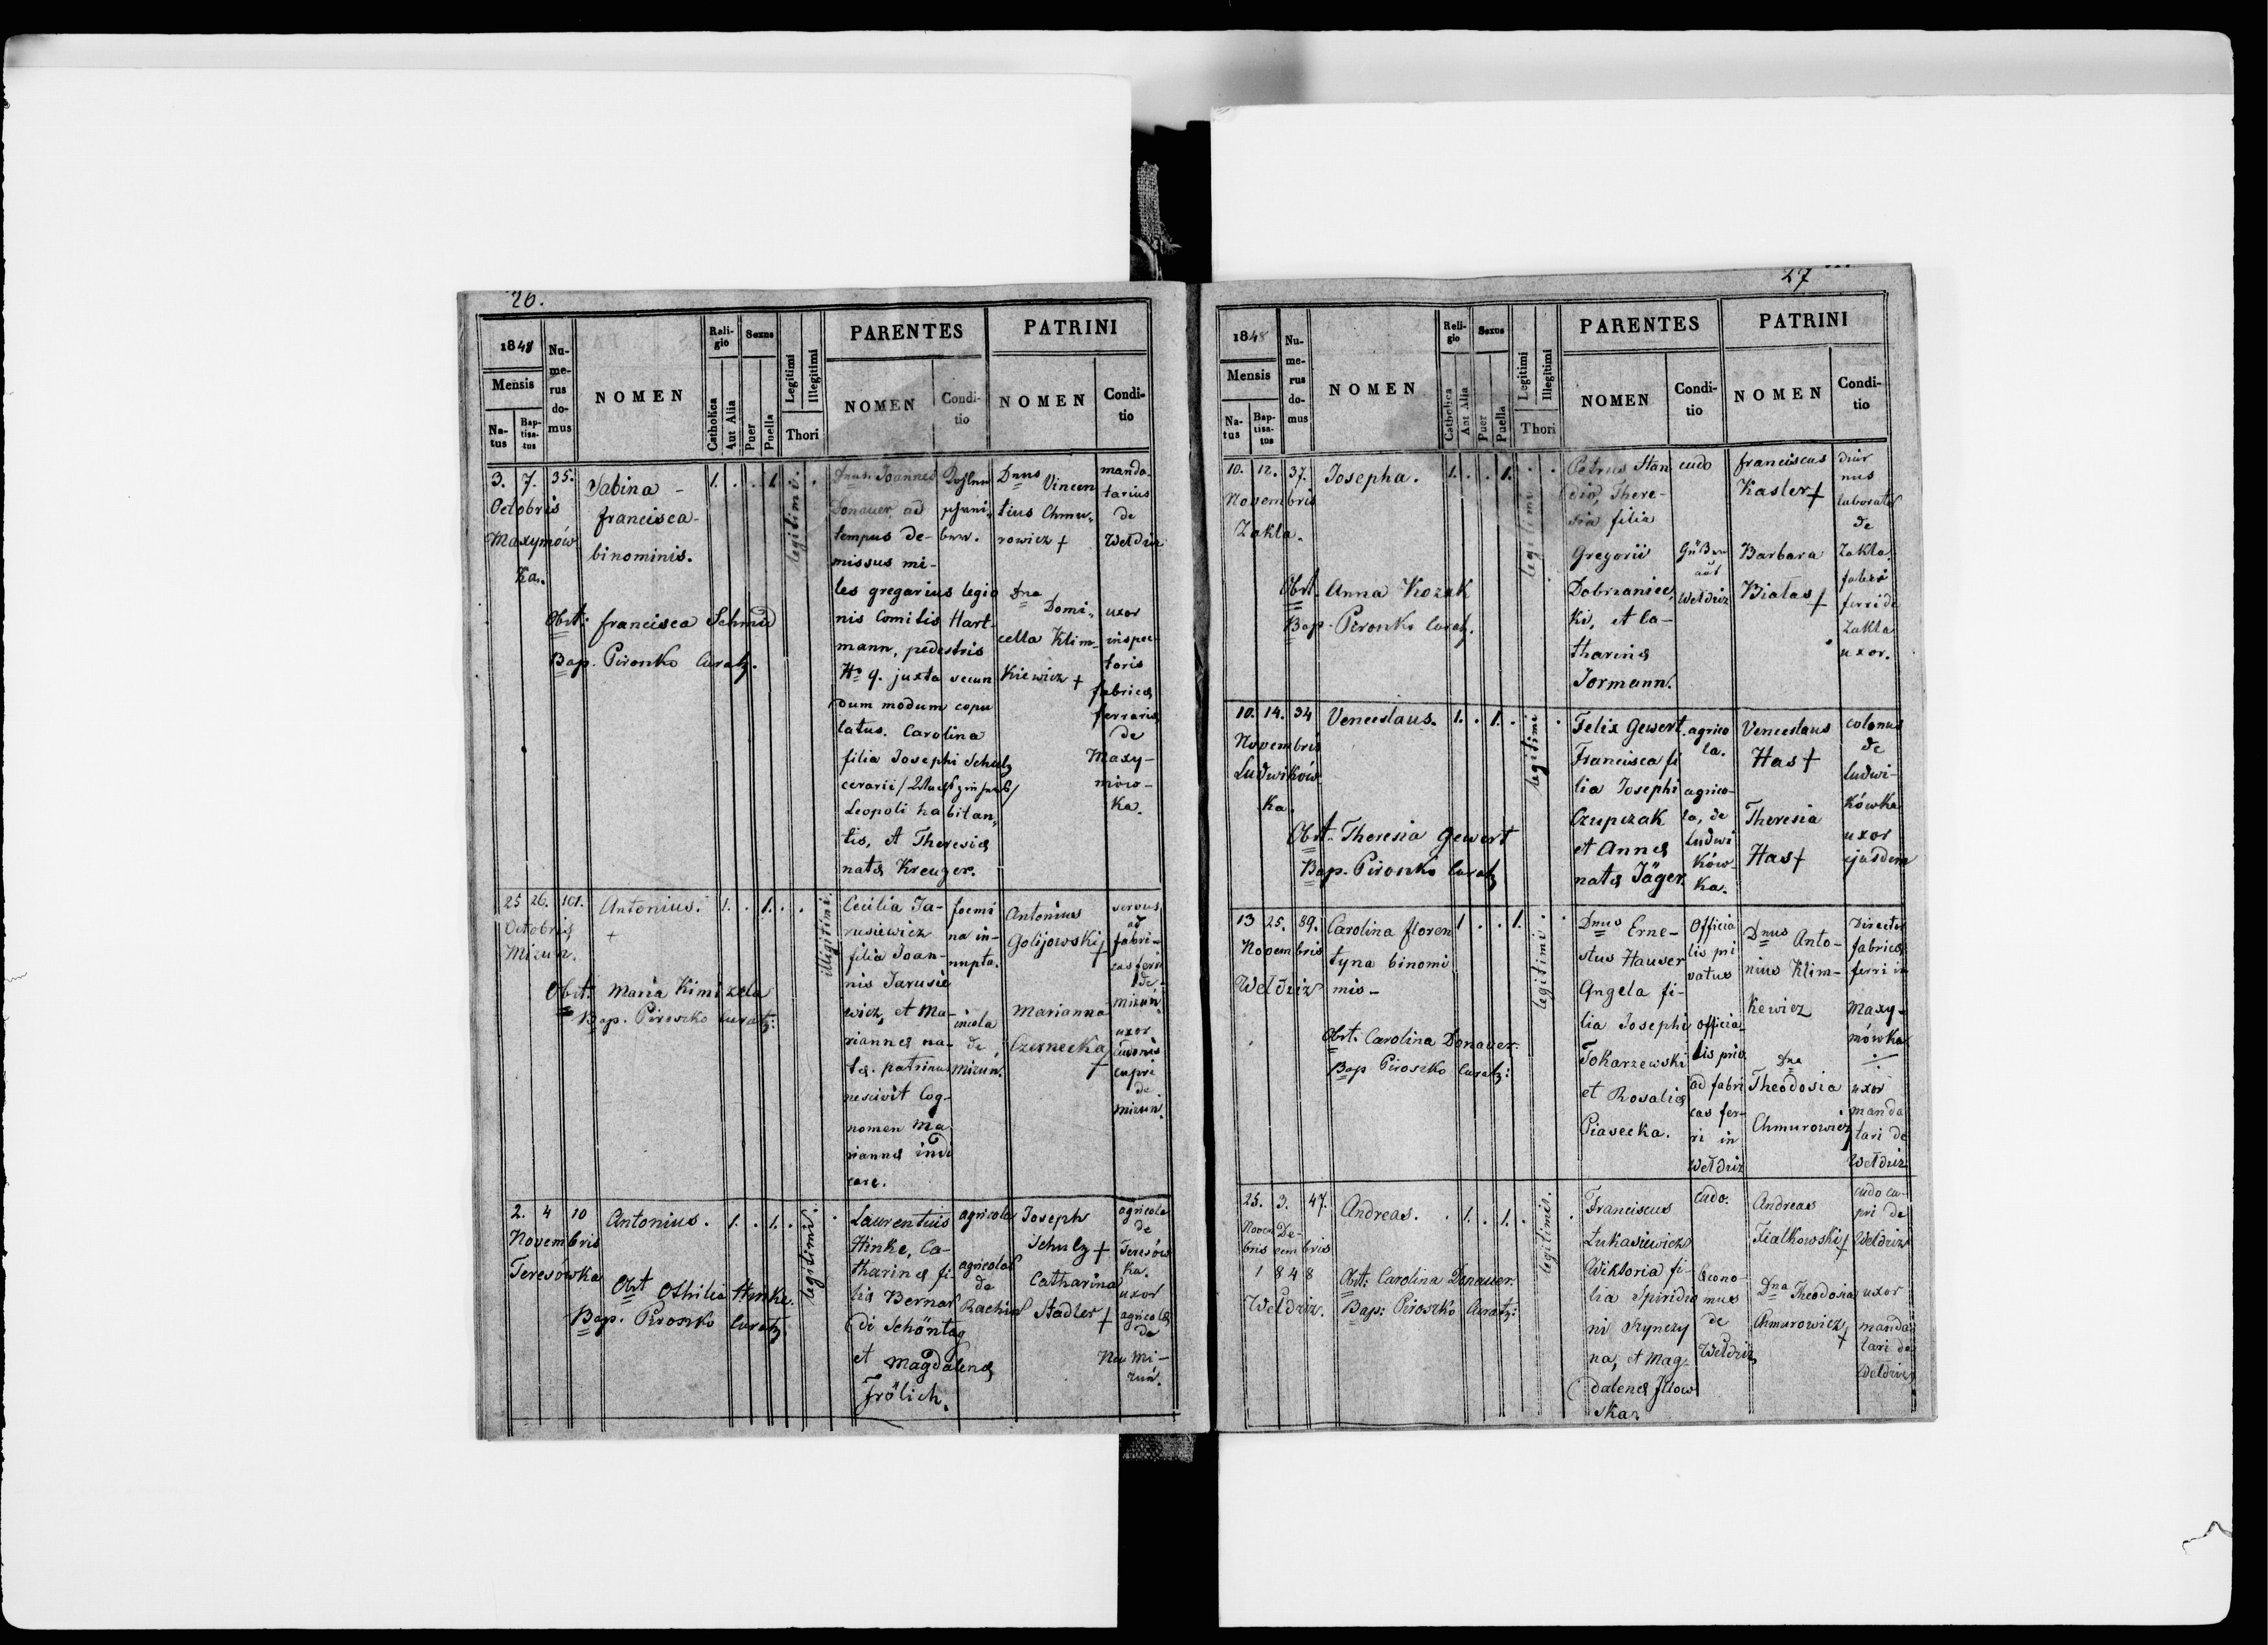 26.
1848
Mensis
Na-
tus
Bap-
tisa-
tus
Nu-
me-
rus
do-
mus
NOMEN
Reli-
gio
Catholica
Aut Alia
Sexus
Puer
Puella
Legitimi
Illegitimi
Thori
PARENTES
NOMEN
Condi-
tio
PATRINI
NOMEN
Condi-
tio
3. 7. 35.
Octobris
Maxymów
ka.
Sabina -
francisca-
binominis.
Obst: francisca Schmid
Bap. Pironko Curat.
1. . . 1.
legitimi.
Dnus Joannes
Donauer, ad
tempus de-
missus mi-
les gregarius legio
nis Comitis Hart-
mann, pedestris
No 9. juxta secun
dum modum copu
latus. Carolina
filia Josephi Schulz
cerarii
Leopoli habitan,
tis, et Theresiæ
natæ Kreuzer.
Dnus Vincen
tius Chmu,
rowicz +
manda-
tarius
de
Wełdziz
Dna Domi,
cella Klim-
kiewicz +
uxor
inspec
toris
fabricæ
ferrariæ
de
Maxy-
mów-
ka.
25 26. 101.
Octobris
Mizun.
Antonius.
+
Obst: Maria Kimizela
Bap. Piroszko Curat:
1. . 1. .
illigitimi.
Cecilia Ja-
rusiewicz
filia Joan-
nis Jarusie
wicz, et Ma-
riannes na-
tæ. patrinus
nescivit Cog-
nomen Ma
riannæ indi
care.
foemi
na in-
nupta.
incola
de
Mizun.
Antonius
Golijowski +
servus
ad
fabri-
cas ferri
de
mizun
Marianna
Czernecka +
uxor
cudonis
cupri
de
mizun.
2. 4 10
Novembris
Teresówka
Antonius.
Obst Othilia Hinke.
Bap. Piroszko Curat.
1. . 1. .
legitimi.
Laurentius
Hinke, Ca-
tharinæ fi-
lia Bernar
di Schöntag
et Magdalenæ
Frölich.
agricola
agricola
de
Rachin
Joseph
Schulz +
agricola
de
Teresów
ka.
Catharina
Stadler +
uxor
agricolæ
de
Neu Mi-
zuń.
27
1848
Mensis
Na-
tus
Bap-
tisa-
tus
Nu-
me-
rus
do-
mus
NOMEN
Reli-
gio
Catholica
Aut Alia
Sexus
Puer
Puella
Legitimi
Illegitimi
Thori
PARENTES
NOMEN
Condi-
tio
PATRINI
NOMEN
Condi-
tio
10. 12. 37.
Novembris
Zakla.
Josepha.
Obst. Anna Kozak
Bap. Pironko Curat.
1. . . 1.
legitimi
Petrus Stan
dio, There-
sia filia
Gregorii
Dobrzaniec
ki, et Ca-
tharinæ
Jormann.
cudo
Wełdziz
franciscus
Kasler +
diur
nus
laborator
de
Zakla.
Barbara
Białas +
fabri
ferri de
Zakla
uxor.
10. 14. 34
Novembris
Ludwików
ka.
Venceslaus.
Obst. Theresia Gewert
Bap. Pironko Curat
1. . 1. .
legitimi
Felix Gewert
Francisca fi
lia Josephi
Czupczak
et Annæ
natæ Jäger.
agrico
la.
agrico-
la, de
Ludwi
ków-
ka.
Venceslaus
Has +
colonus
de
Ludwi-
kówka
Theresia
Has +
uxor
ejusdem
13 25. 89.
Novembris
Wełdziz
Carolina floren
tyna binomi
mis-
Obst: Carolina Donauer.
Bap Piroszko Curat:
1 . . 1.
legitimi.
Dnus Erne-
stus Hauser
Angela fi-
lia Josephi
Tokarzewski
et Rosaliæ
Piasecka.
Officia
lis pri
vatus
officia-
lis priv.
ad fabri
cas fer-
ri in
Wełdziz
Dnus Anto-
nius Klim-
kewicz
Director
fabricæ
ferri in
Maxy-
mówka
Dna
Theodosia
Chmurowicz
uxor
manda
tari de
Wełdziz
25. 3. 47.
Novem De-
bris cembris
1848
Wełdziz.
Andreas.
Obst: Carolina Donauer.
Bap: Piroszko Curat:
. 1. . 1. .
legitimis.
Franciscus
Łukasiewicz
Wiktoria fi-
lia Spiridio
ni Szynczy
na, et Mag-
dalenæ Iłow
ska.
Cudo.
Econo-
mus
de
Wełdziz
Andreas
Fialkowski +
cudo cu-
pri de
Wełdziz
Dna Theodosia
Chmurowicz +
uxor
manda
tari de
Wełdziz